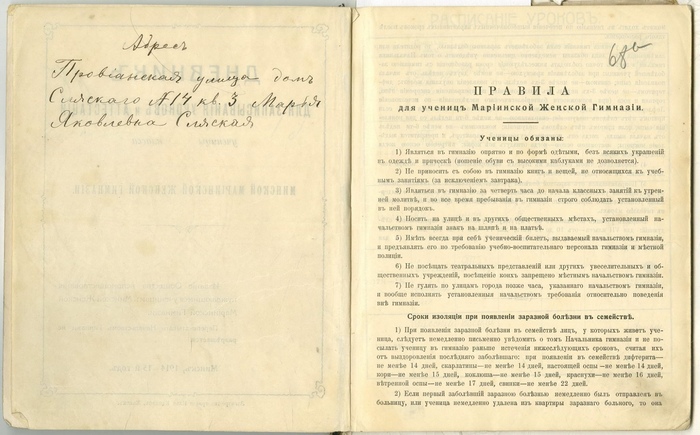 Адресъ
Провіанская улица домъ
Сляскаго №14 кв. 3 Марья
Яковлевна Сляская
68
ПРАВИЛА
для ученицъ Маріинской Женской Гимназіи.
Ученицы обязаны:
1) Являться въ гимназію опрятно и по формѣ одѣтыми, безъ всякихъ украшеній
въ одеждѣ и прическѣ (ношеніе обуви съ высокими каблуками не дозволяется).
2) Не приносить съ собою въ гимназію книгъ и вещей, не относящихся къ учеб-
нымъ занятіямъ (за исключеніемъ завтрака).
3) Являться въ гимназію за четверть часа до начала классныхъ занятій къ утрен-
ней молитвѣ, и во все время пребыванія въ гимназіи строго соблюдать установленный
въ ней порядокъ.
4) Носить на улицѣ и въ другихъ общественныхъ мѣстахъ, установленный на-
чальствомъ гимназіи знакъ на шляпѣ и на платьѣ.
5) Имѣть всегда при себѣ ученическій билетъ, выдаваемый начальствомъ гимназіи,
и предъявлять его по требованію учебно-воспитательнаго персонала гимназіи и мѣстной
полиціи.
6) Не посѣщать театральныхъ представленій или другихъ увеселительныхъ и об-
щественныхъ учрежденій, посѣщеніе коихъ запрещено мѣстнымъ начальствомъ гимназіи.
7) Не гулять по улицамъ города позже часа, указаннаго начальствомъ гимназіи,
и вообще исполнять установленныя начальствомъ требованія относительно поведенія
внѣ гимназіи.
Сроки изоляціи при появленіи заразной болѣзни въ семействѣ.
1) При появленіи заразной болѣзни въ семействѣ лицъ, у которыхъ живетъ уче-
ница, слѣдуетъ немедленно письменно увѣдомить о томъ Начальника гимназіи и не по-
сылать ученицу въ гимназію раньше истеченія нижеслѣдующихъ сроковъ, считая ихъ
отъ выздоровленія послѣдняго заболѣвшаго: при появленіи въ семействѣ дифтерита—
не менѣе 14 дней, скарлатины—не менѣе 14 дней, настоящей оспы—не менѣе 14 дней,
кори—не менѣе 15 дней, коклюша—не менѣе 15 дней, краснухи—не менѣе 16 дней,
вѣтренной оспы—не менѣе 17 дней, свинки—не менѣе 22 дней.
2) Если первый заболѣвшій заразною болѣзнью немедленно былъ отправленъ въ
больницу, или ученица немедленно удалена изъ квартиры заразнаго больного, то она